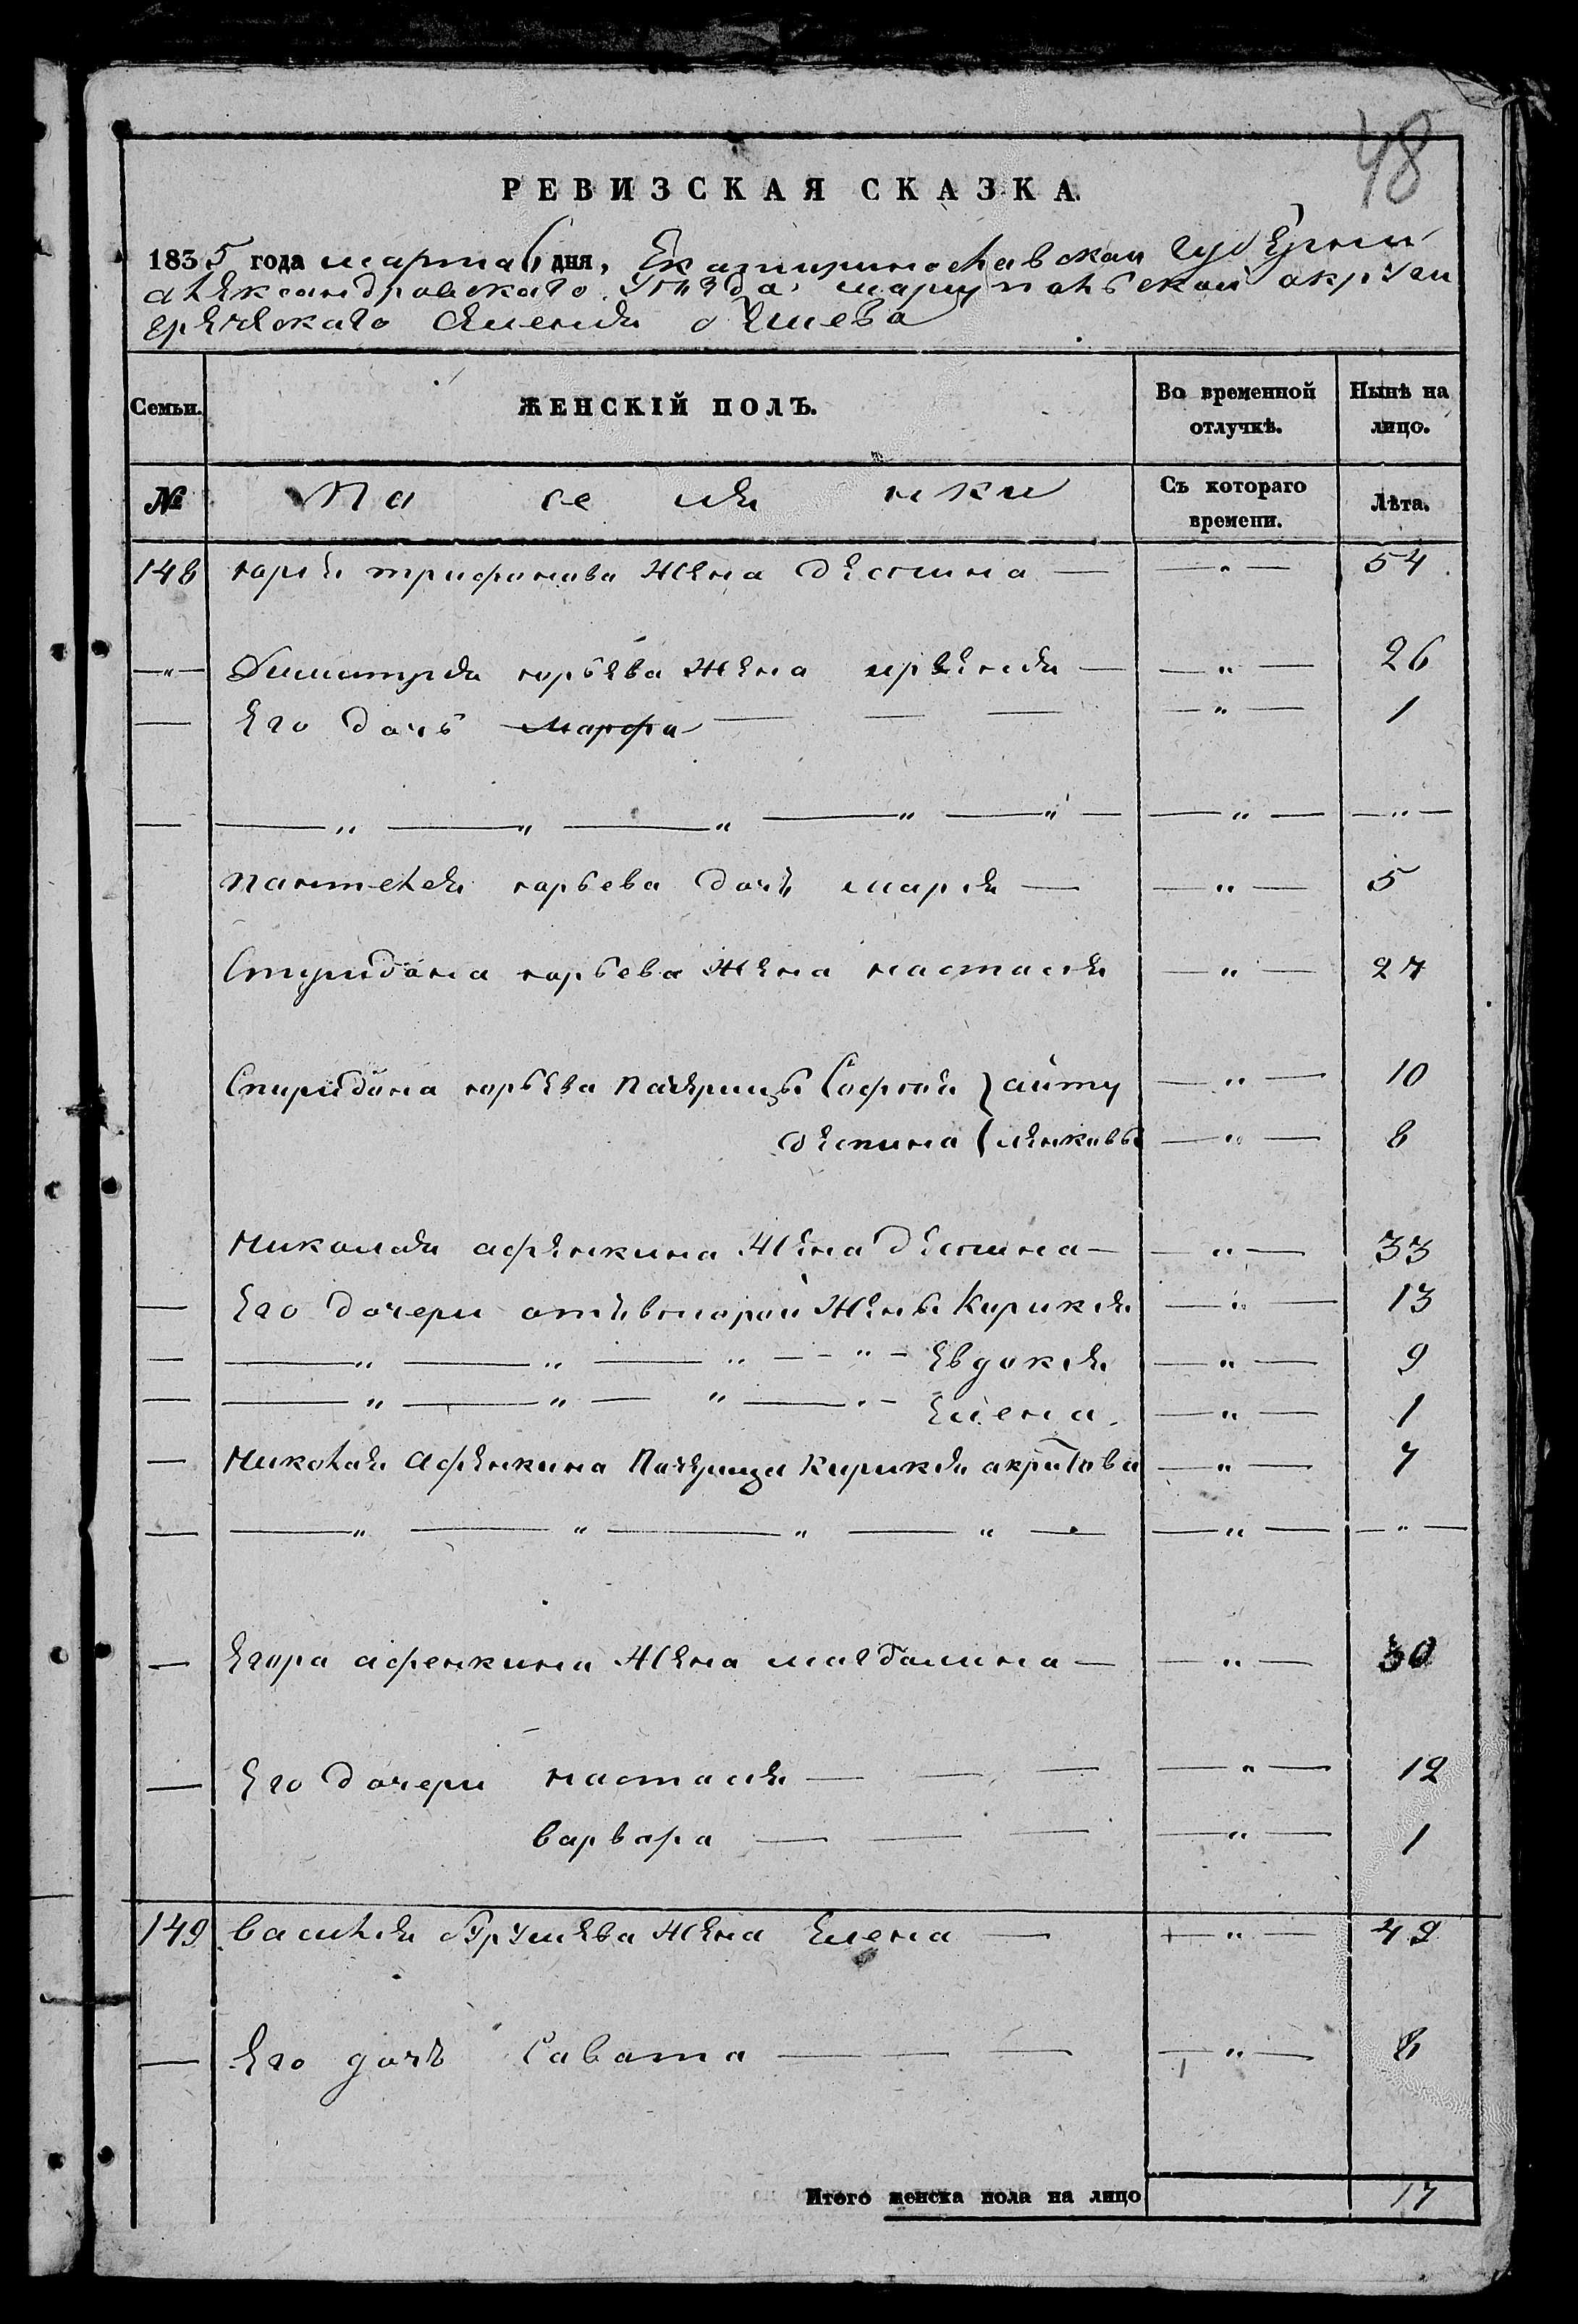 48
РЕВИЗСКАЯ СКАЗКА.
1835 года марта 6 дня, Екатиринославской губернии
александровскаго уезда мариупольской округи
греческаго селения
Семьи. ЖЕНСКІЙ ПОЛЪ. Во временной отлучкѣ. Нынѣ на лицо.
№ Поселянки Съ котораго времени. Лѣта.
148 юрия трифонова жена деспина — — „ — 54
— „ — Димитрия юрьева жена — — „ — 26
— Его дочь марфа — — — — „ — 1
— — „ — „ — „ — „ — „ — — „ — — „ —
пантелея юрьева дочь мария — — „ — 5
Спиридона юрьева жена настасия — „ — 27
Спиридона юрьева падчерицы София — „ — 10
деспина — „ — 8
Николая афенкина жена деспина — — „ — 33
— Его дочери отъ второй жены Кирикия — „ — 13
— — „ — „ — „ — „ — Евдокия — „ — 9
— — „ — „ — „ — „ — Елена. — „ — 1
— Николая афенкина Падчерица Кирикия акритова — „ — 7
— — „ — „ — „ — „ — — „ — — „ —
— Егора афенкина жена магдалина — — „ — 30
— Его дочери настасия — — — — „ — 12
варвара — — — — „ — 1
149 василия жена Елена — — „ — 49
— Его дочь Савата — — — — „ — 8
Итого женска пола на лицо 17